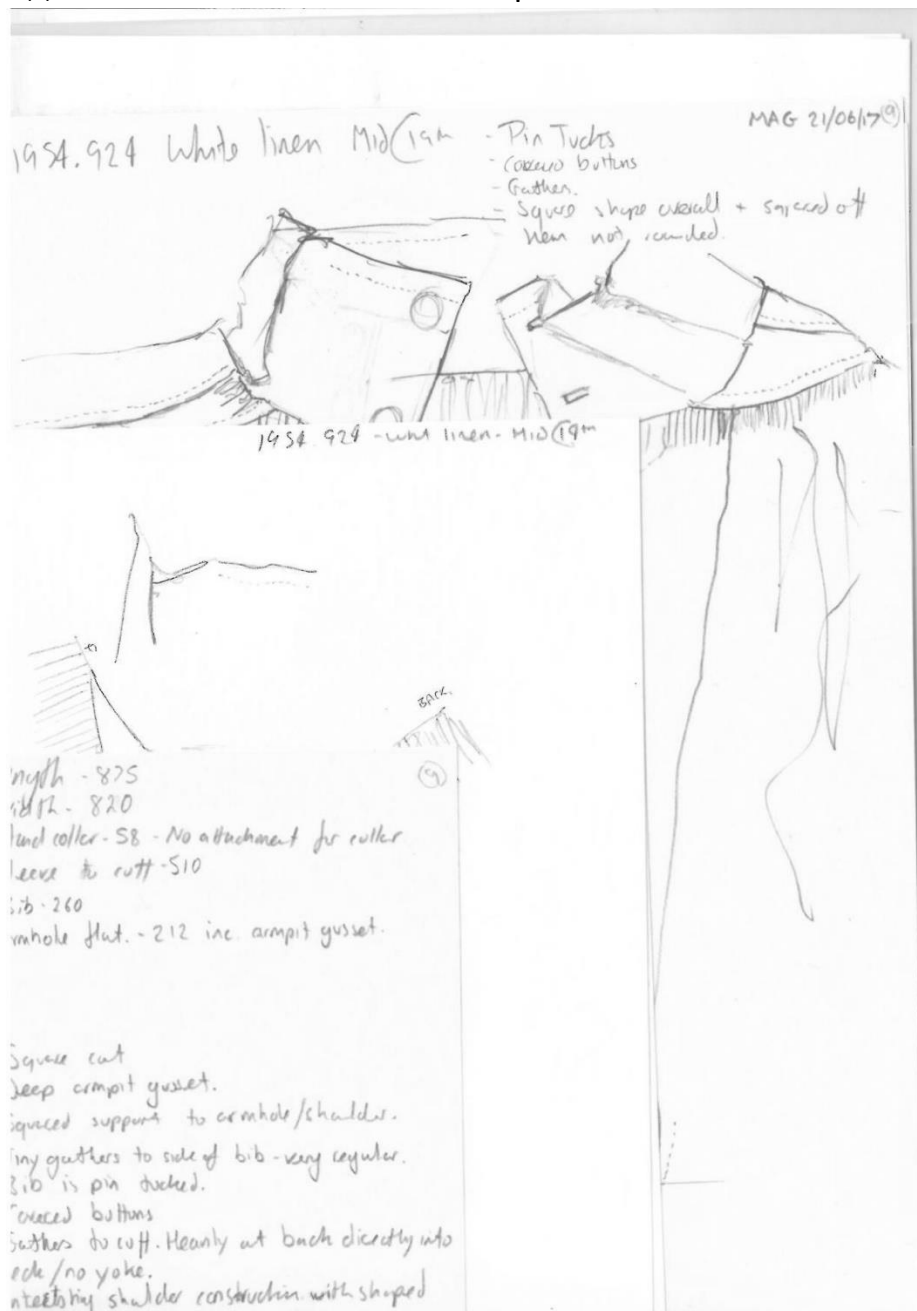 MAG 21/06/17 9
1954.924 White linen Mid C19th - Pin Tucks
- Covered buttons
- Gathers.
- Square shape overall + squared off
hem not rounded.
1954.924 - white linen - Mid C19th
BACK.
ngth - 875
idth - 820
tand collar - 58 - No attachment for collar
leeve to cuff - 510
ib - 260
rmhole flat. - 212 inc. armpit gusset.
9
Square cut
Deep armpit gusset.
Squared support to armhole/shoulder.
Tiny gathers to side of bib - very regular.
Bib is pin tucked.
Covered buttons
Gathers to cuff. Heavily at back directly into
eck/no yoke.
nteresting shoulder construction with shaped